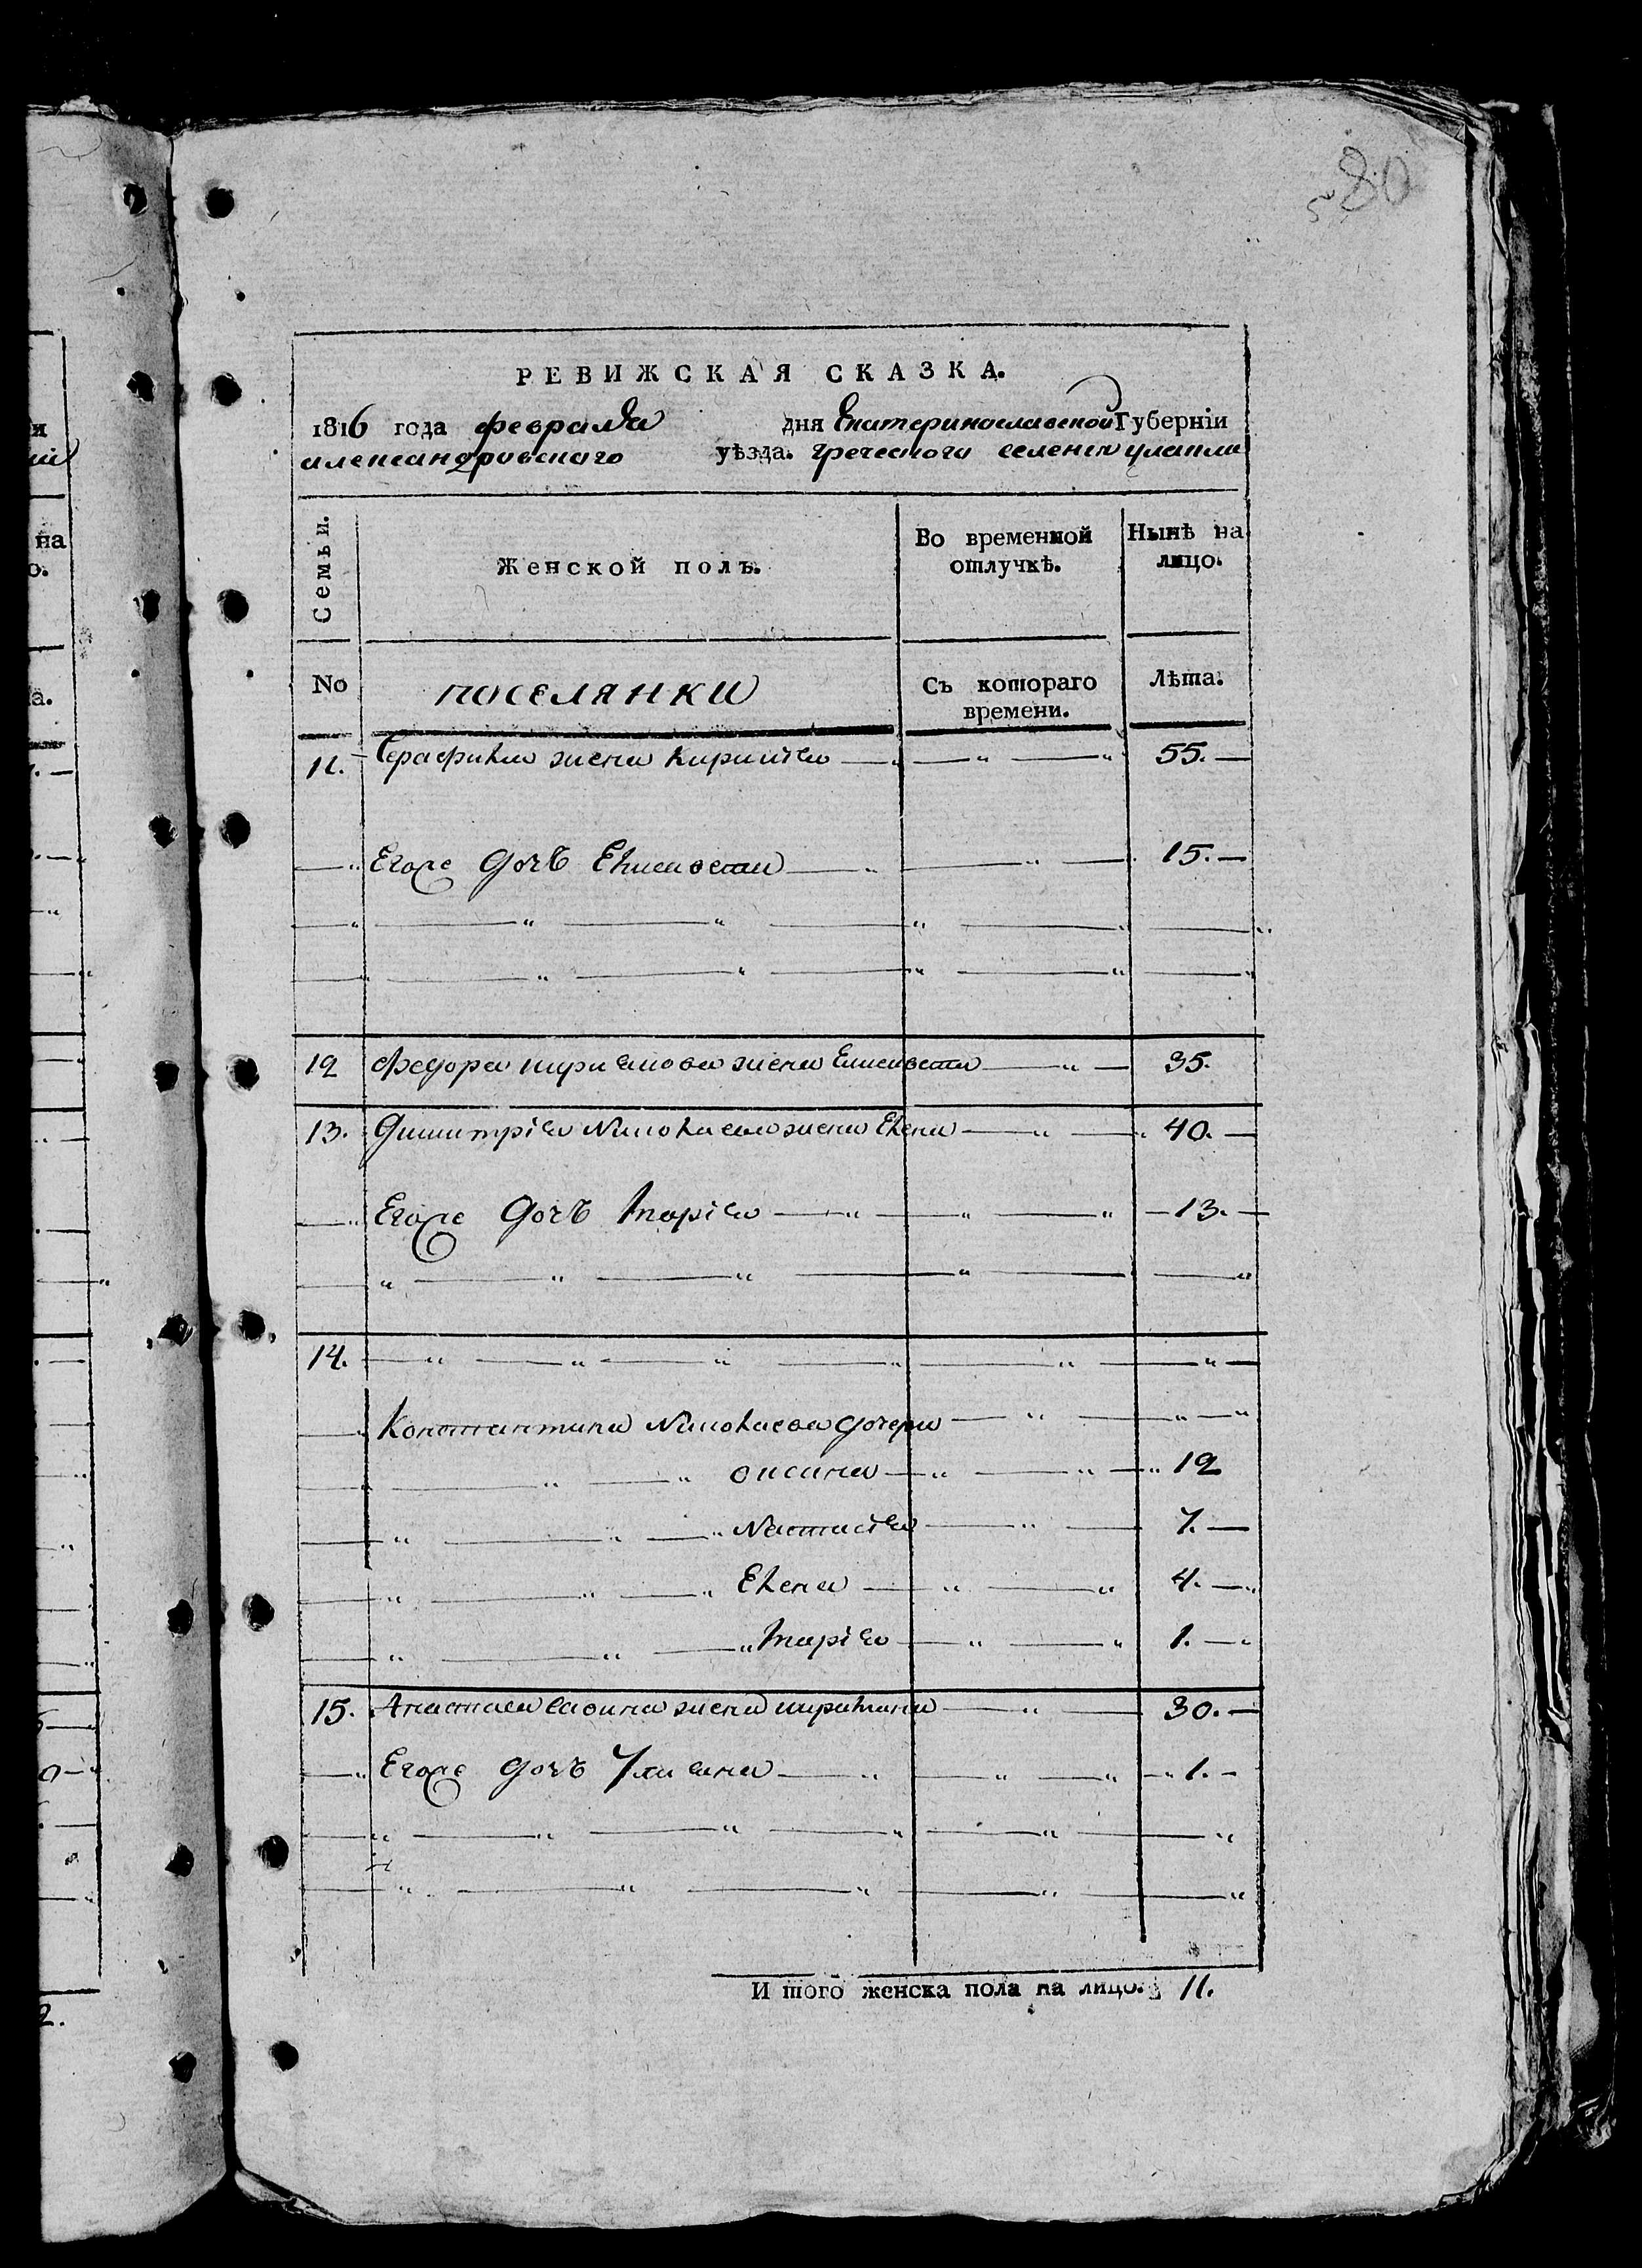 80
РЕВИЖСКАЯ СКАЗКА.
1816 года февраля дня Екатеринославской Губерніи
александровского уѣзда. греческого селенія улаклы
Семьи.
Женской полъ.
Во временной отлучкѣ.
Нынѣ на лицо.
No
поселянки
Съ котораго времени.
Лѣта.
11. жена 55.
Егоже дочь Елисавета 15.
12 Федора жена Елисавета 35.
13. Димитрія Николаева жена Елена 40.
Егоже дочь Марія 13.
14.
Константина Николаева дочери
оксана 12
Настасія 7.
Елена 4.
Марія 1.
15. Анастаса савина жена 30.
Егоже дочь 1.
И того женска пола на лицо. 11.